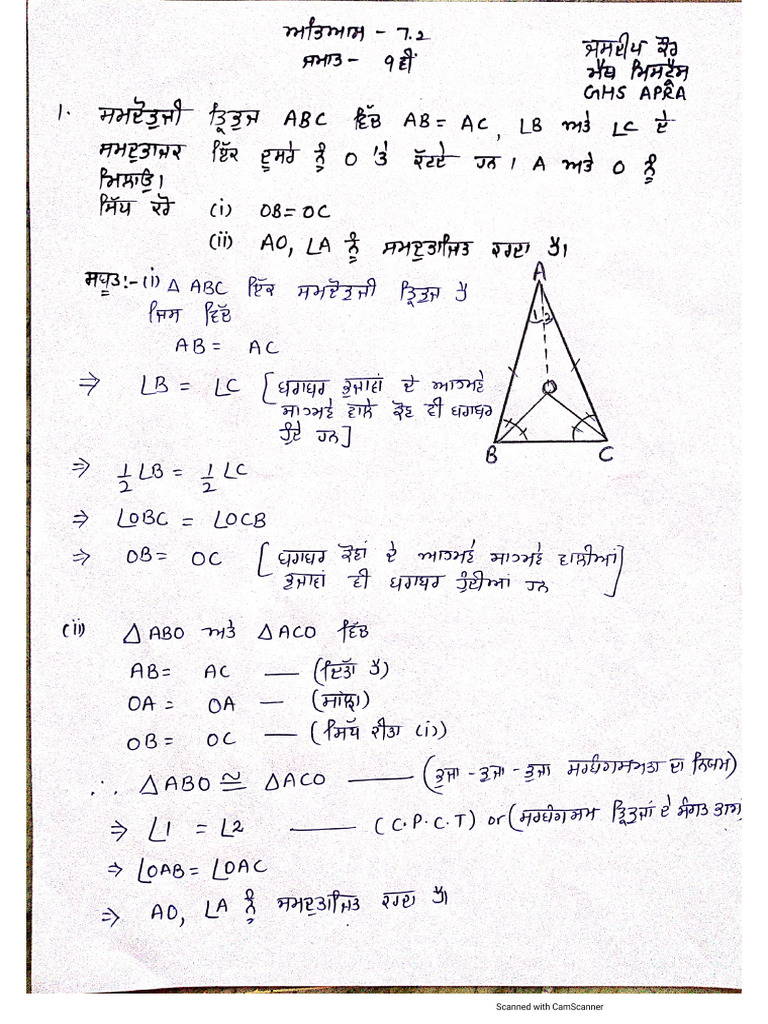 ਅਭਿਆਸ - 7.2
ਜਮਾਤ - 9ਵੀਂ
ਜਸਦੀਪ ਕੌਰ
ਮੈਥ ਮਿਸਟ੍ਰੈਸ
GHS APRA
1. ਸਮਦੋਭੁਜੀ ਤ੍ਰਿਭੁਜ ABC ਵਿੱਚ AB = AC, ∠B ਅਤੇ ∠C ਦੇ
ਸਮਦੁਭਾਜਕ ਇੱਕ ਦੂਸਰੇ ਨੂੰ O 'ਤੇ ਕੱਟਦੇ ਹਨ। A ਅਤੇ O ਨੂੰ
ਮਿਲਾਓ।
ਸਿੱਧ ਕਰੋ (i) OB = OC
(ii) AO, ∠A ਨੂੰ ਸਮਦੁਭਾਜਿਤ ਕਰਦਾ ਹੈ।
ਸਬੂਤ:- (i) △ ABC ਇੱਕ ਸਮਦੋਭੁਜੀ ਤ੍ਰਿਭੁਜ ਹੈ
ਜਿਸ ਵਿੱਚ
AB = AC
⇒ ∠B = ∠C [ਬਰਾਬਰ ਭੁਜਾਵਾਂ ਦੇ ਆਹਮਣੇ
ਸਾਹਮਣੇ ਵਾਲੇ ਕੋਣ ਵੀ ਬਰਾਬਰ
ਹੁੰਦੇ ਹਨ]
A
1 2
O
B C
⇒ 1/2 ∠B = 1/2 ∠C
⇒ ∠OBC = ∠OCB
⇒ OB = OC [ਬਰਾਬਰ ਕੋਣਾਂ ਦੇ ਆਹਮਣੇ ਸਾਹਮਣੇ ਵਾਲੀਆਂ
ਭੁਜਾਵਾਂ ਵੀ ਬਰਾਬਰ ਹੁੰਦੀਆਂ ਹਨ]
(ii) △ ABO ਅਤੇ △ ACO ਵਿੱਚ
AB = AC — (ਦਿੱਤਾ ਹੈ)
OA = OA — (ਸਾਂਝਾ)
OB = OC — (ਸਿੱਧ ਕੀਤਾ (i))
∴ △ABO ≅ △ACO — (ਭੁਜਾ - ਭੁਜਾ - ਭੁਜਾ ਸਰਬੰਗਸਮਤਾ ਦਾ ਨਿਯਮ)
⇒ ∠1 = ∠2 — (C.P.C.T) or (ਸਰਬੰਗਸਮ ਤ੍ਰਿਭੁਜਾਂ ਦੇ ਸੰਗਤ ਭਾਗ)
⇒ ∠OAB = ∠OAC
⇒ AO, ∠A ਨੂੰ ਸਮਦੁਭਾਜਿਤ ਕਰਦਾ ਹੈ।
Scanned with CamScanner